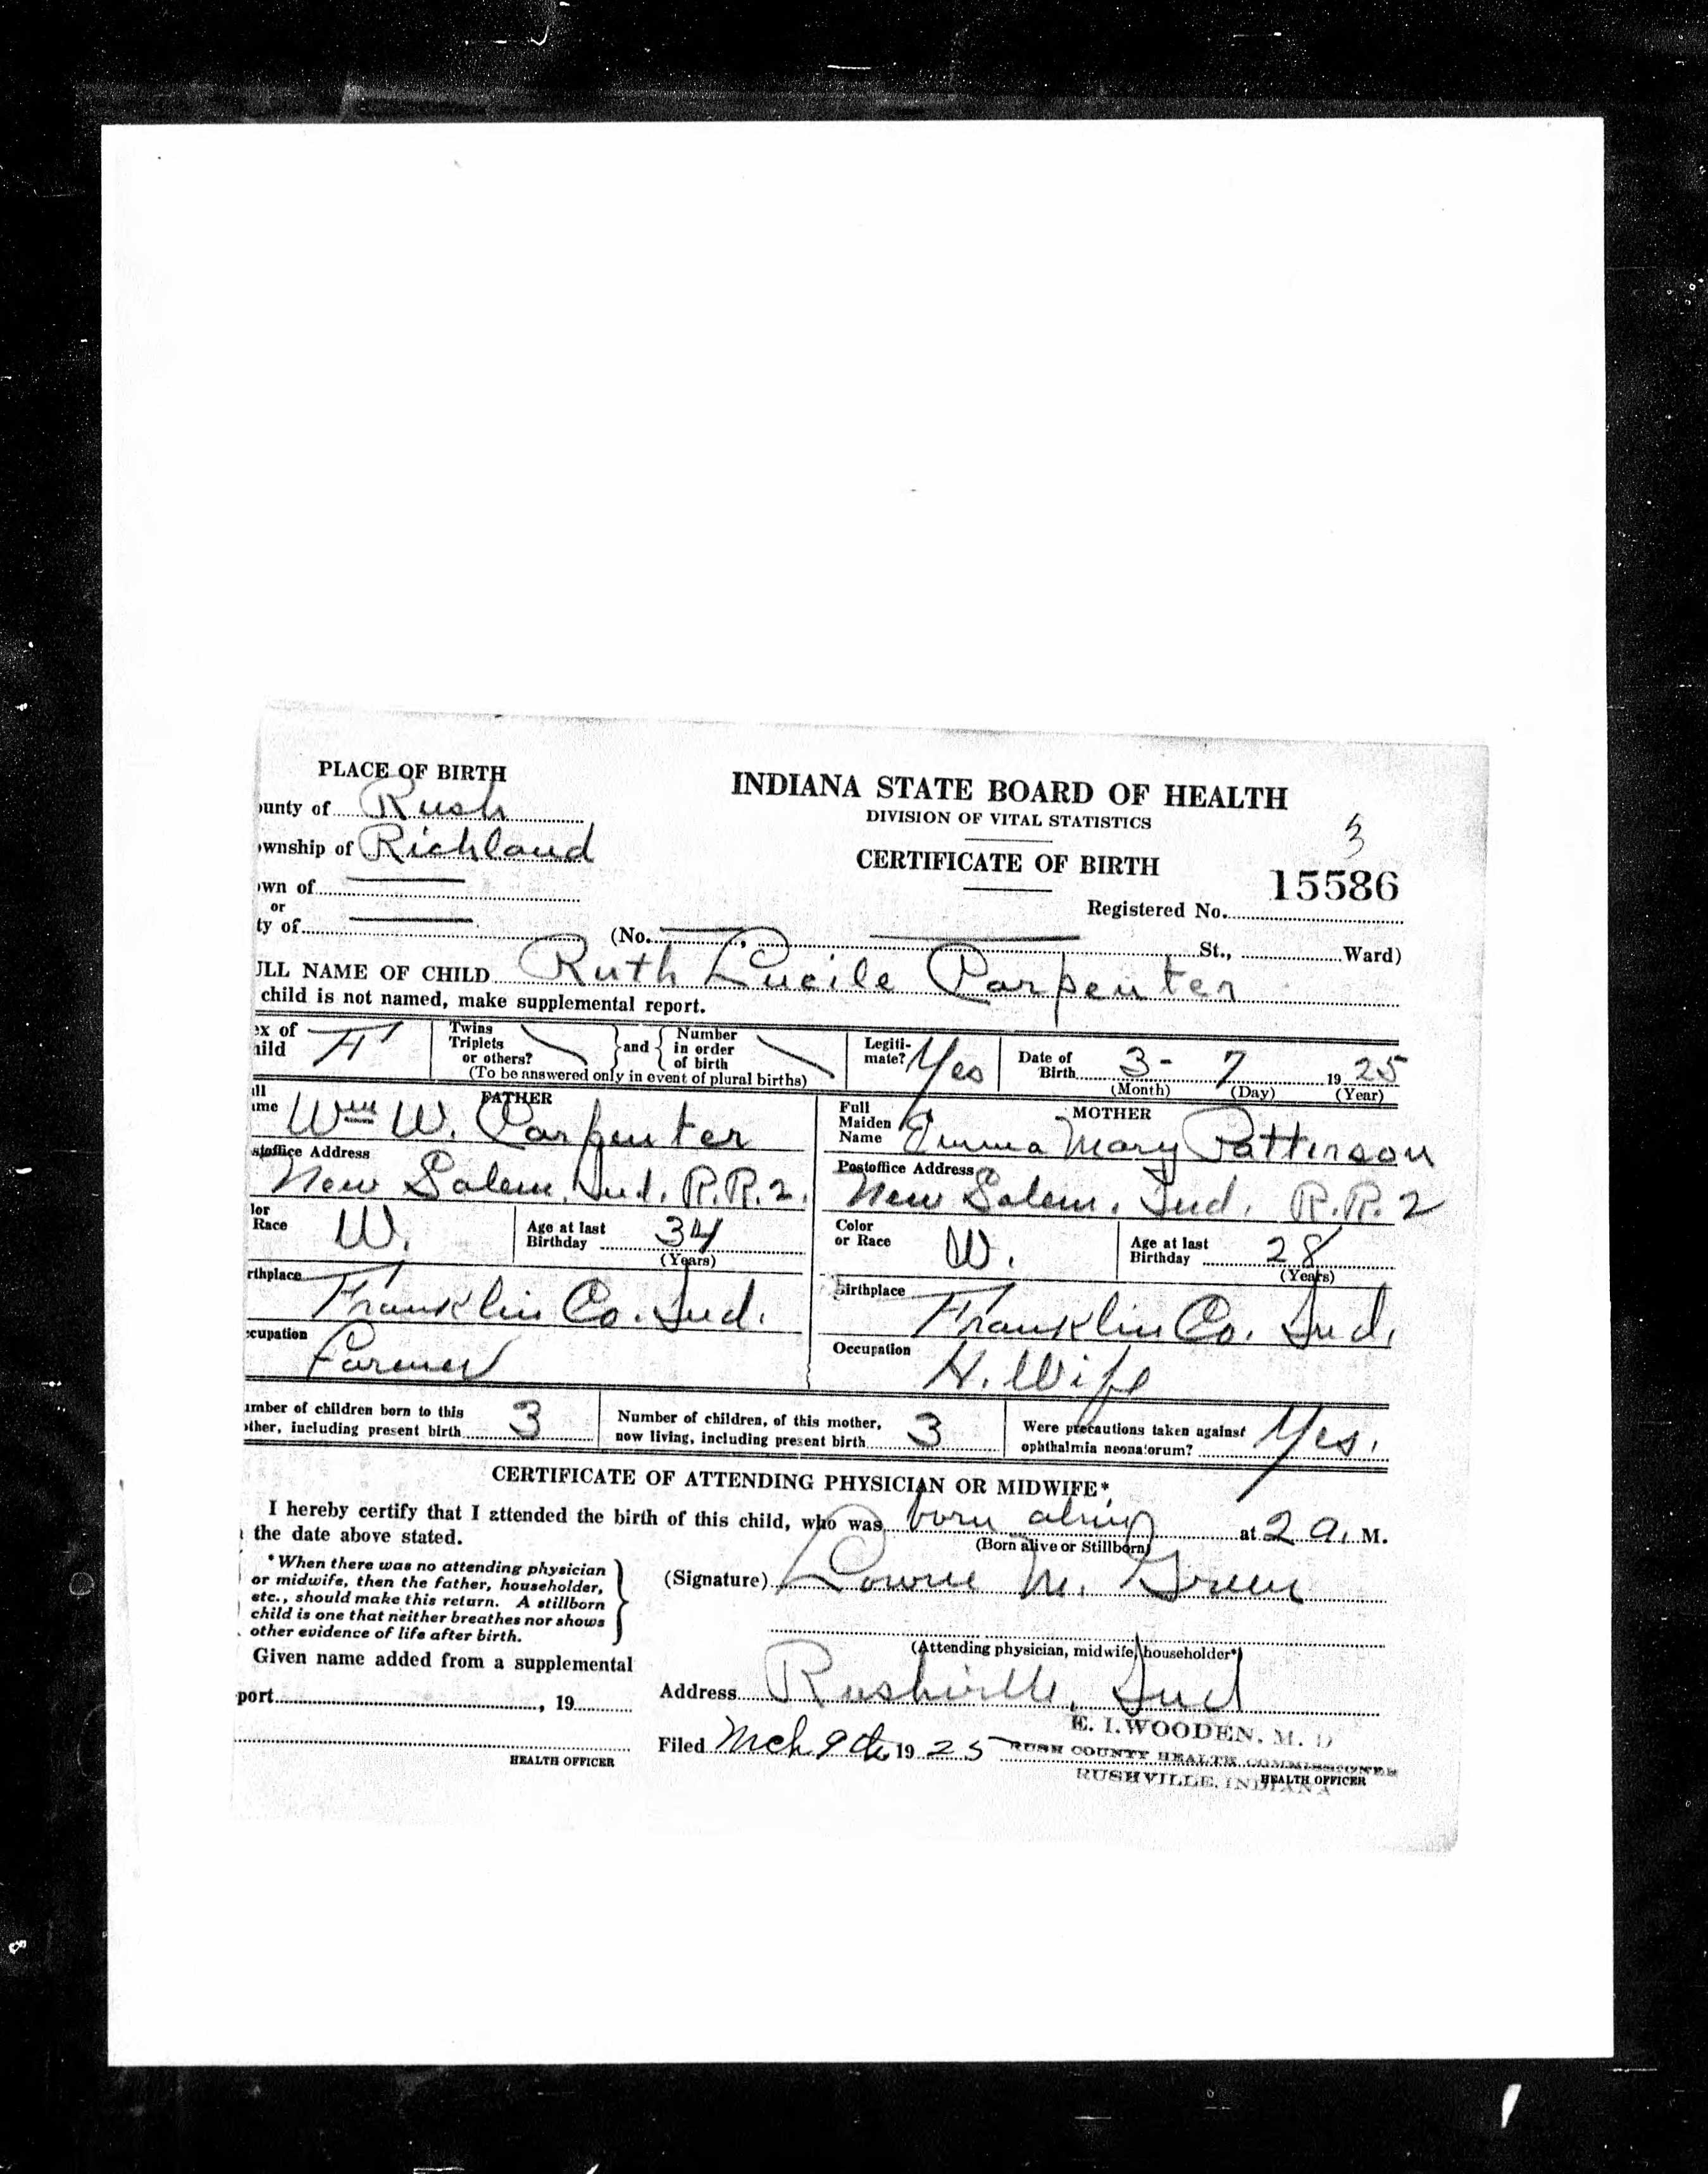 PLACE OF BIRTH
ounty of Rush
ownship of Richland
own of
or
ty of
INDIANA STATE BOARD OF HEALTH
DIVISION OF VITAL STATISTICS
3
CERTIFICATE OF BIRTH
15586
Registered No.
(No. , St., Ward)
ULL NAME OF CHILD Ruth Lucile Carpenter
child is not named, make supplemental report.
ex of
hild F
Twins
Triplets
or others?
and
Number
in order
of birth
(To be answered only in event of plural births)
Legiti-
mate? Yes
Date of
Birth 3- 7 1925
(Month) (Day) (Year)
FATHER
ull
ame Wm W. Carpenter
stoffice Address
New Salem, Ind. R.R.2.
lor
Race W.
Age at last
Birthday 34
(Years)
rthplace
Franklin Co. Ind.
ccupation
Farmer
MOTHER
Full
Maiden
Name Emma Mary Patterson
Postoffice Address
New Salem. Ind. R.R.2
Color
or Race W.
Age at last
Birthday 28
(Years)
Birthplace
Franklin Co. Ind.
Occupation
H. Wife
umber of children born to this
other, including present birth 3
Number of children, of this mother,
now living, including present birth 3
Were precautions taken against
ophthalmia neonatorum? Yes.
CERTIFICATE OF ATTENDING PHYSICIAN OR MIDWIFE*
I hereby certify that I attended the birth of this child, who was born at 2 a. M.
(Born alive or Stillborn)
the date above stated.
*When there was no attending physician
or midwife, then the father, householder,
etc., should make this return. A stillborn
child is one that neither breathes nor shows
other evidence of life after birth.
(Signature) Lowrie M. Green
(Attending physician, midwife, householder*)
Given name added from a supplemental
port , 19
HEALTH OFFICER
Address Rushville, Ind
Filed Mch 9th 1925
E. I. WOODEN, M. D
RUSH COUNTY HEALTH COMMISSIONER
RUSHVILLE, INDIANA
HEALTH OFFICER